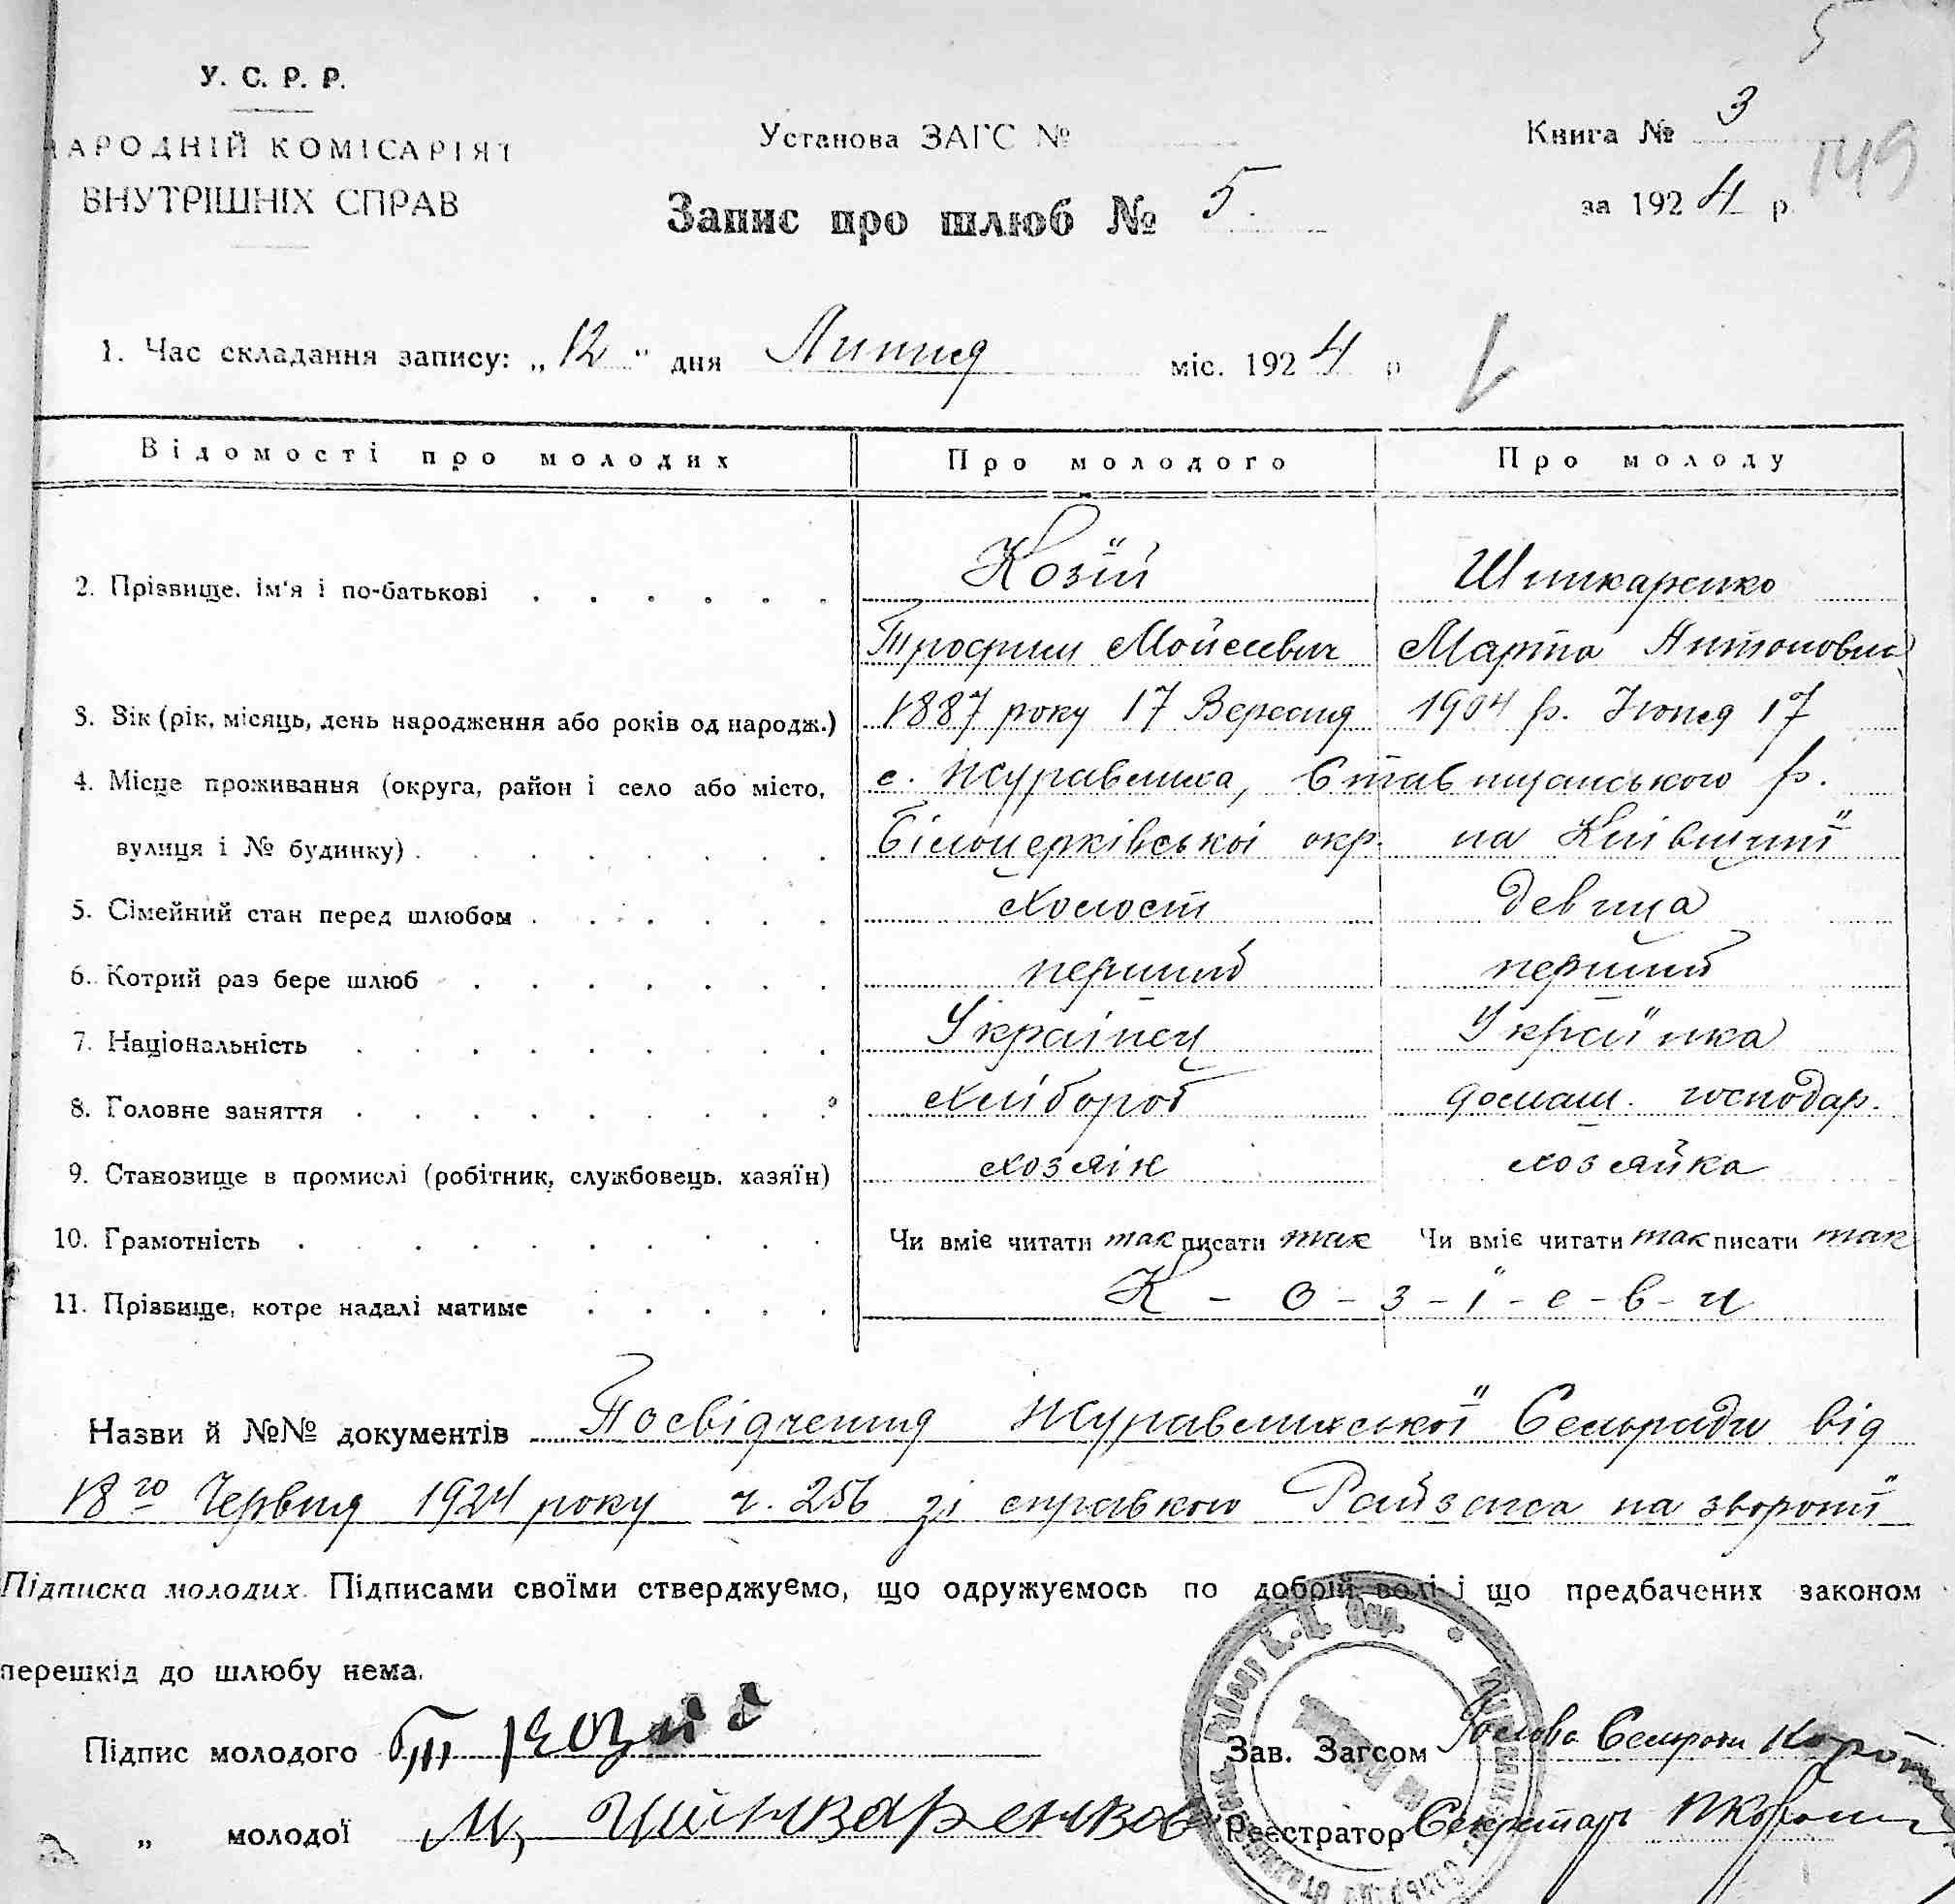 5
У. С. Р. Р.
НАРОДНІЙ КОМІСАРІЯТ
ВНУТРІШНІХ СПРАВ
Установа ЗАГС №
Книга № 3
149
Запис про шлюб № 5.
за 1924 р.
1. Час складання запису: „12" дня Липня міс. 1924 р
Відомості про молодих Про молодого Про молоду
2. Прізвище, ім'я і по-батькові Козій Шинкаренко
Трофим Мойсеевич Марта Антоновна
3. Вік (рік, місяць, день народження або років од народж.) 1887 року 17 Вересня 1904 р. Июня 17
4. Місце проживання (округа, район і село або місто, с. Журавлиха, Ставищанського р.
вулиця і № будинку) Білоцерківської окр. на Київщині
5. Сімейний стан перед шлюбом Холост девица
6. Котрий раз бере шлюб перший перший
7. Національність Українец Українка
8. Головне заняття Хлібороб домаш. господар.
9. Становище в промислі (робітник, службовець, хазяїн) хозяін хозяйка
10. Грамотність Чи вміє читати так писати так Чи вміє читати так писати так
11. Прізвище, котре надалі матиме К - о - з - і - е - в - и
Назви й №№ документів Посвідчення Журавлихської Сельради від
18го Червня 1924 року ч. 256 зі справкою Райзагса на звороті
Підписка молодих. Підписами своїми стверджуємо, що одружуємось по добрій волі і що предбачених законом
перешкід до шлюбу нема.
Підпис молодого Т Козий Зав. Загсом Голова Сельради
„ молодої М, Реєстратор Секретарь